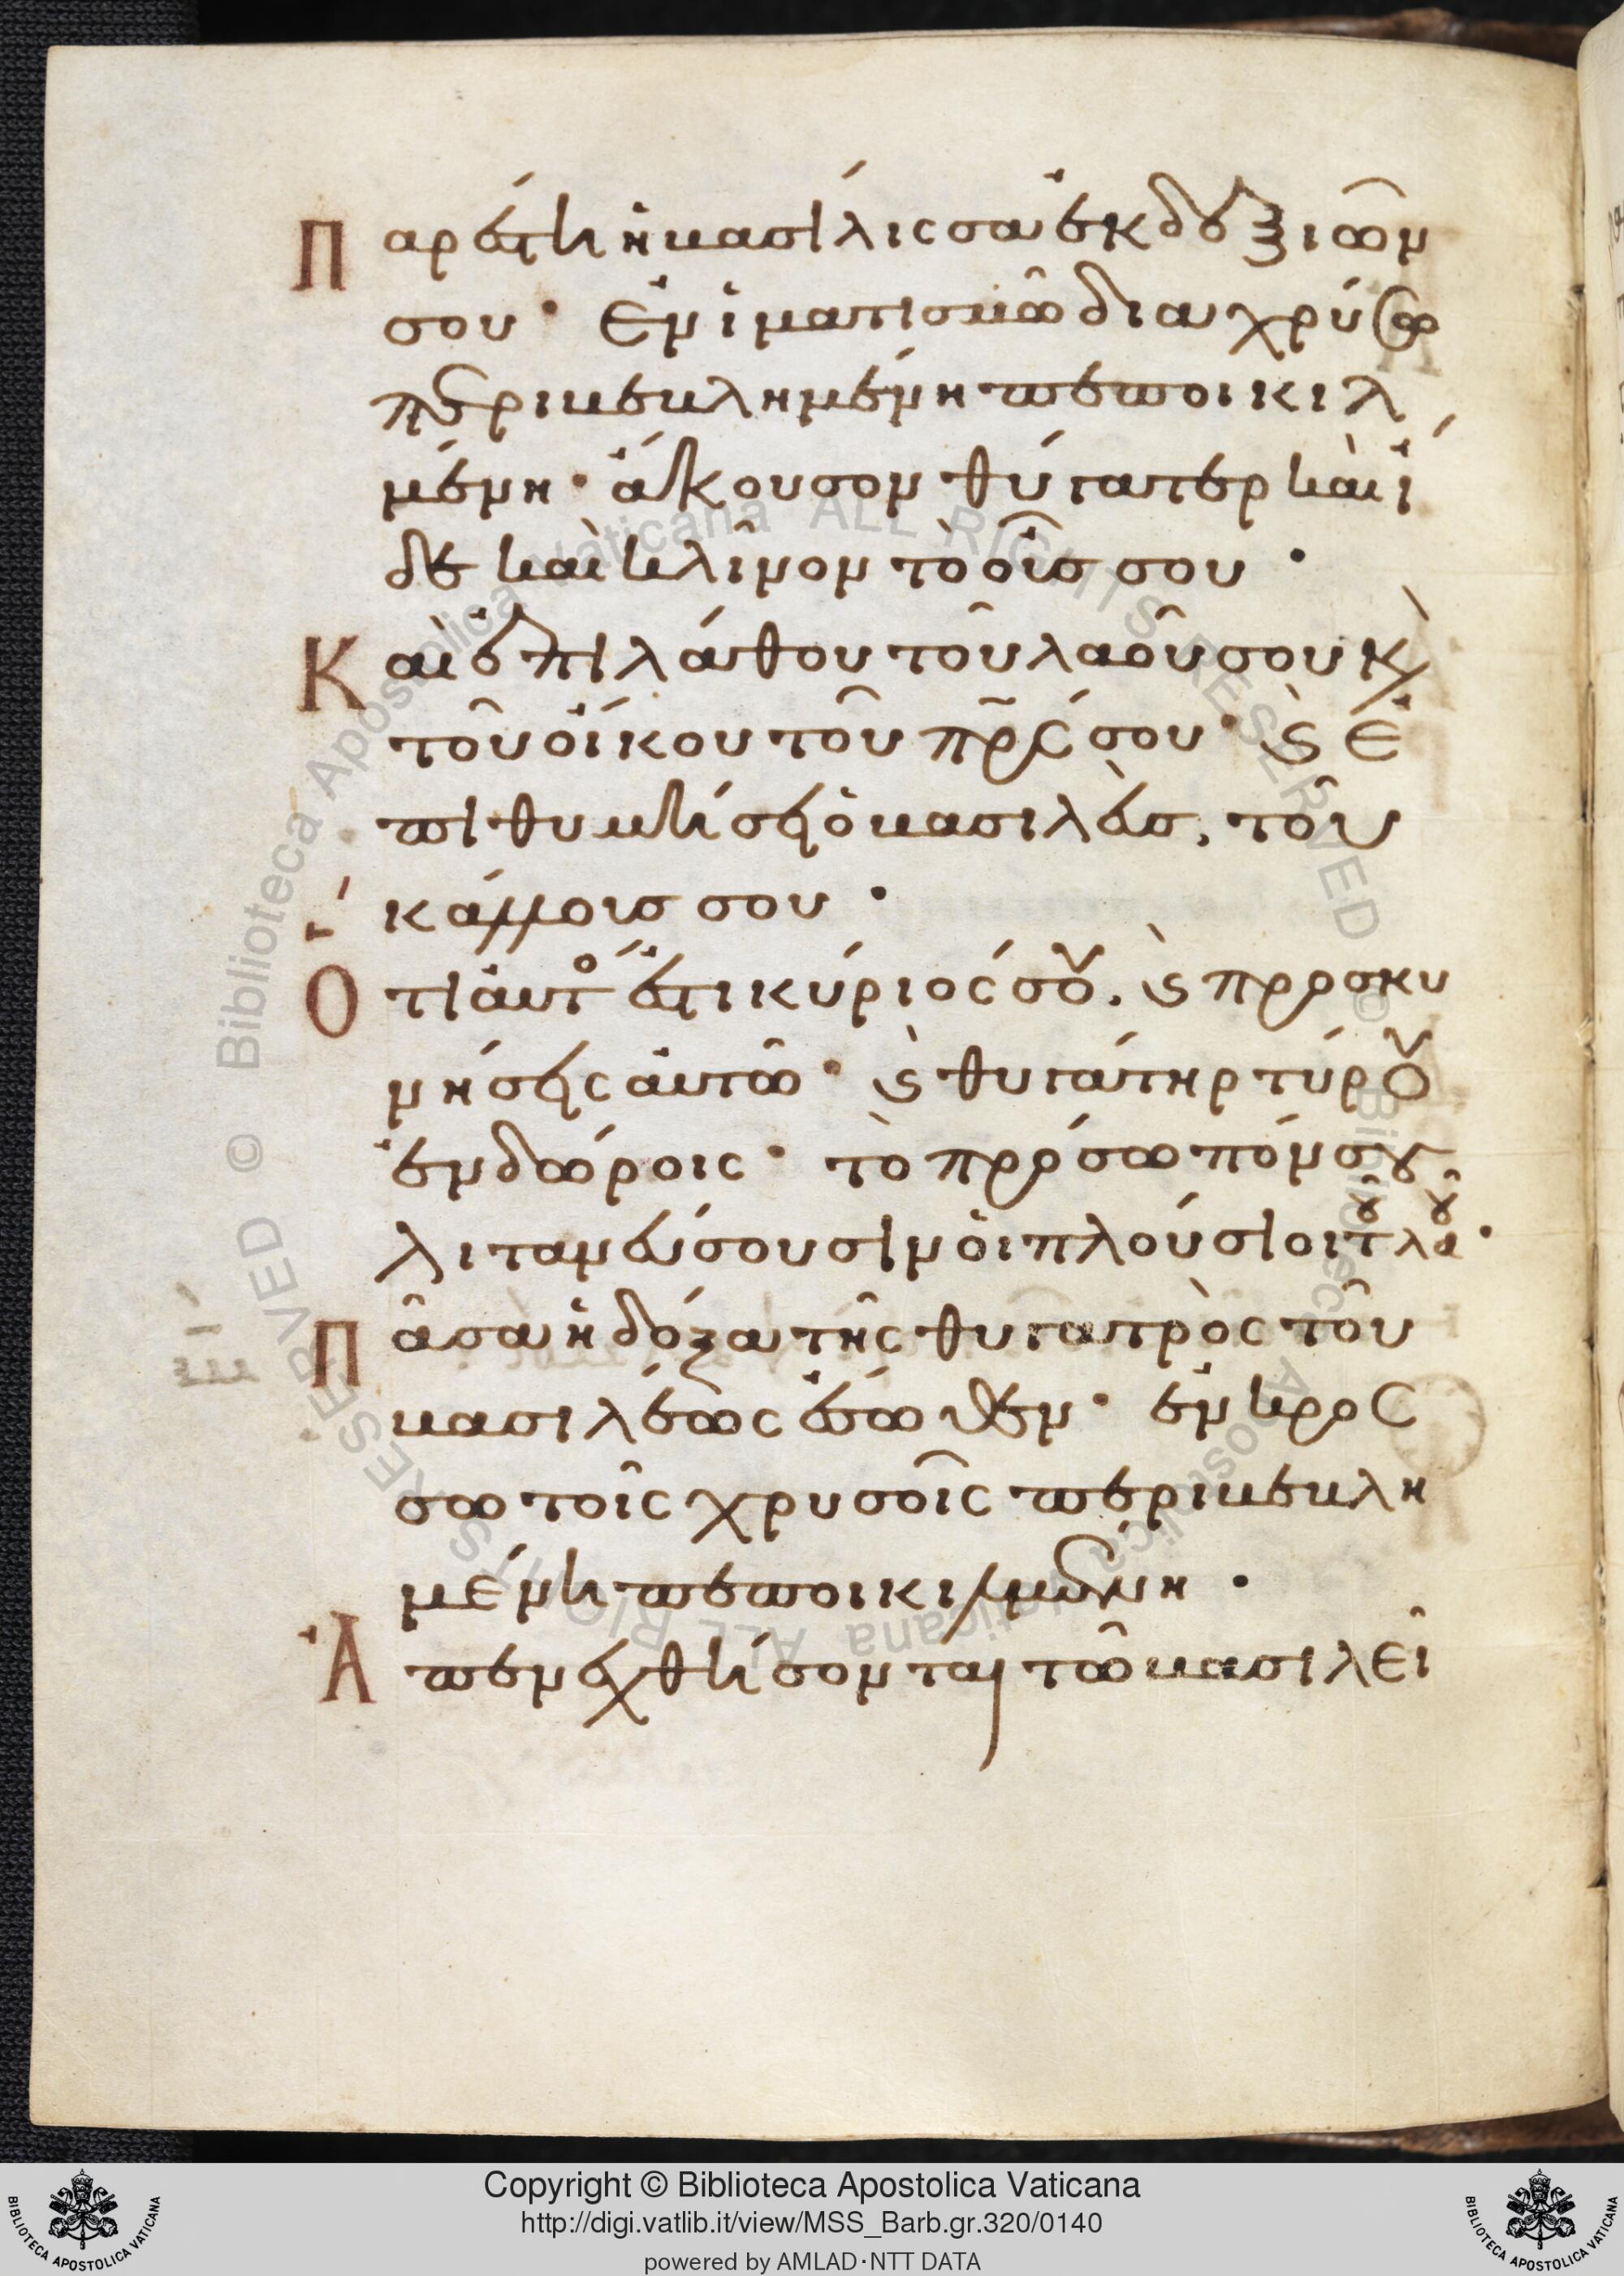 Παρέστη ἡ βασίλισσα ἐκ δεξιῶν
σου· ἐν ἱματισμῶ διαχρύσω
περιβεβλημένη πεποικιλ
μένη· ἄκουσον θύγατερ καὶ ἴ
δε καὶ κλῖνον τὸ οὖς σου·
Καὶ ἐπιλάθου τοῦ λαοῦ σου κ(αὶ)
τοῦ οἴκου τοῦ πρ̅ς σου· ϗ ἐ
πιθυμήσει ὁ βασιλεὺς, τοῦ
κάλλους σου·
Ὅτι αὐτός ἐστι κύριός σου. ϗ προσκυ
νήσεις αὐτῶ· ϗ θυγάτηρ τύρου
ἐν δώροις· τὸ πρόσωπόν σου
λιτανεύσουσιν οἱ πλούσιοι τοῦ λαοῦ·
Πᾶσα ἡ δόξα τῆς θυγατρὸς τοῦ
βασιλέως ἔσωθεν· ἐν κροσ
σωτοῖς χρυσοῖς περιβεβλη
μένη πεποικιλμένη·
Ἀπενεχθήσονται τῶ βασιλεῖ
Copyright © Biblioteca Apostolica Vaticana
http://digi.vatlib.it/view/MSS_Barb.gr.320/0140
powered by AMLAD·NTT DATA